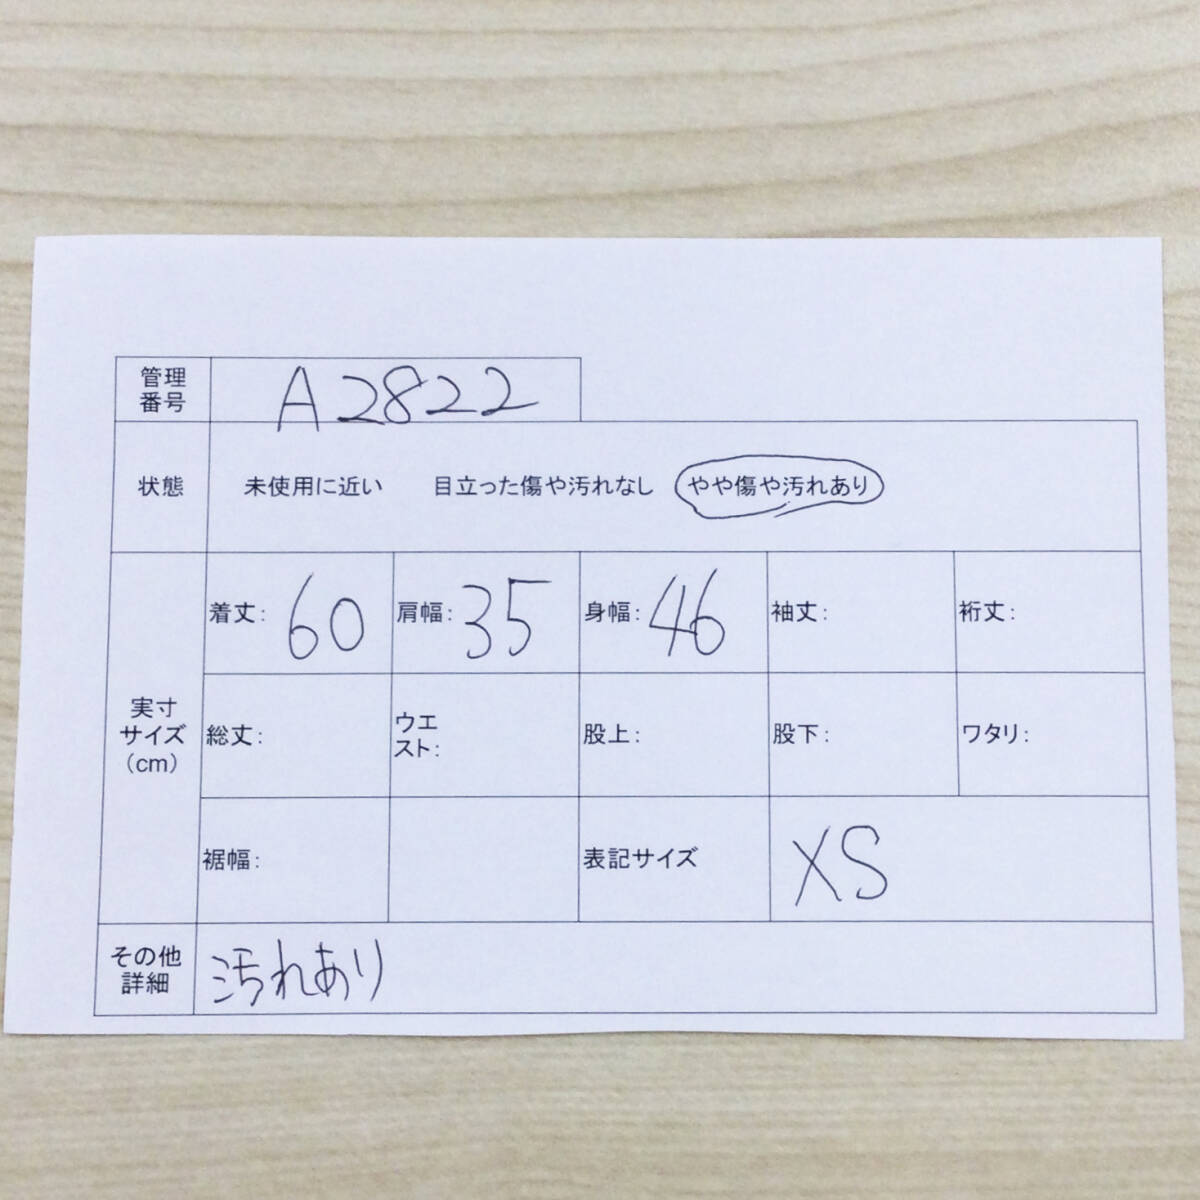 管理
番号 A2822
状態 未使用に近い 目立った傷や汚れなし やや傷や汚れあり
着丈: 60 肩幅: 35 身幅: 46 袖丈: 裄丈:
実寸
サイズ
(cm)
総丈: ウエ
スト: 股上: 股下: ワタリ:
裾幅: 表記サイズ XS
その他
詳細 汚れあり